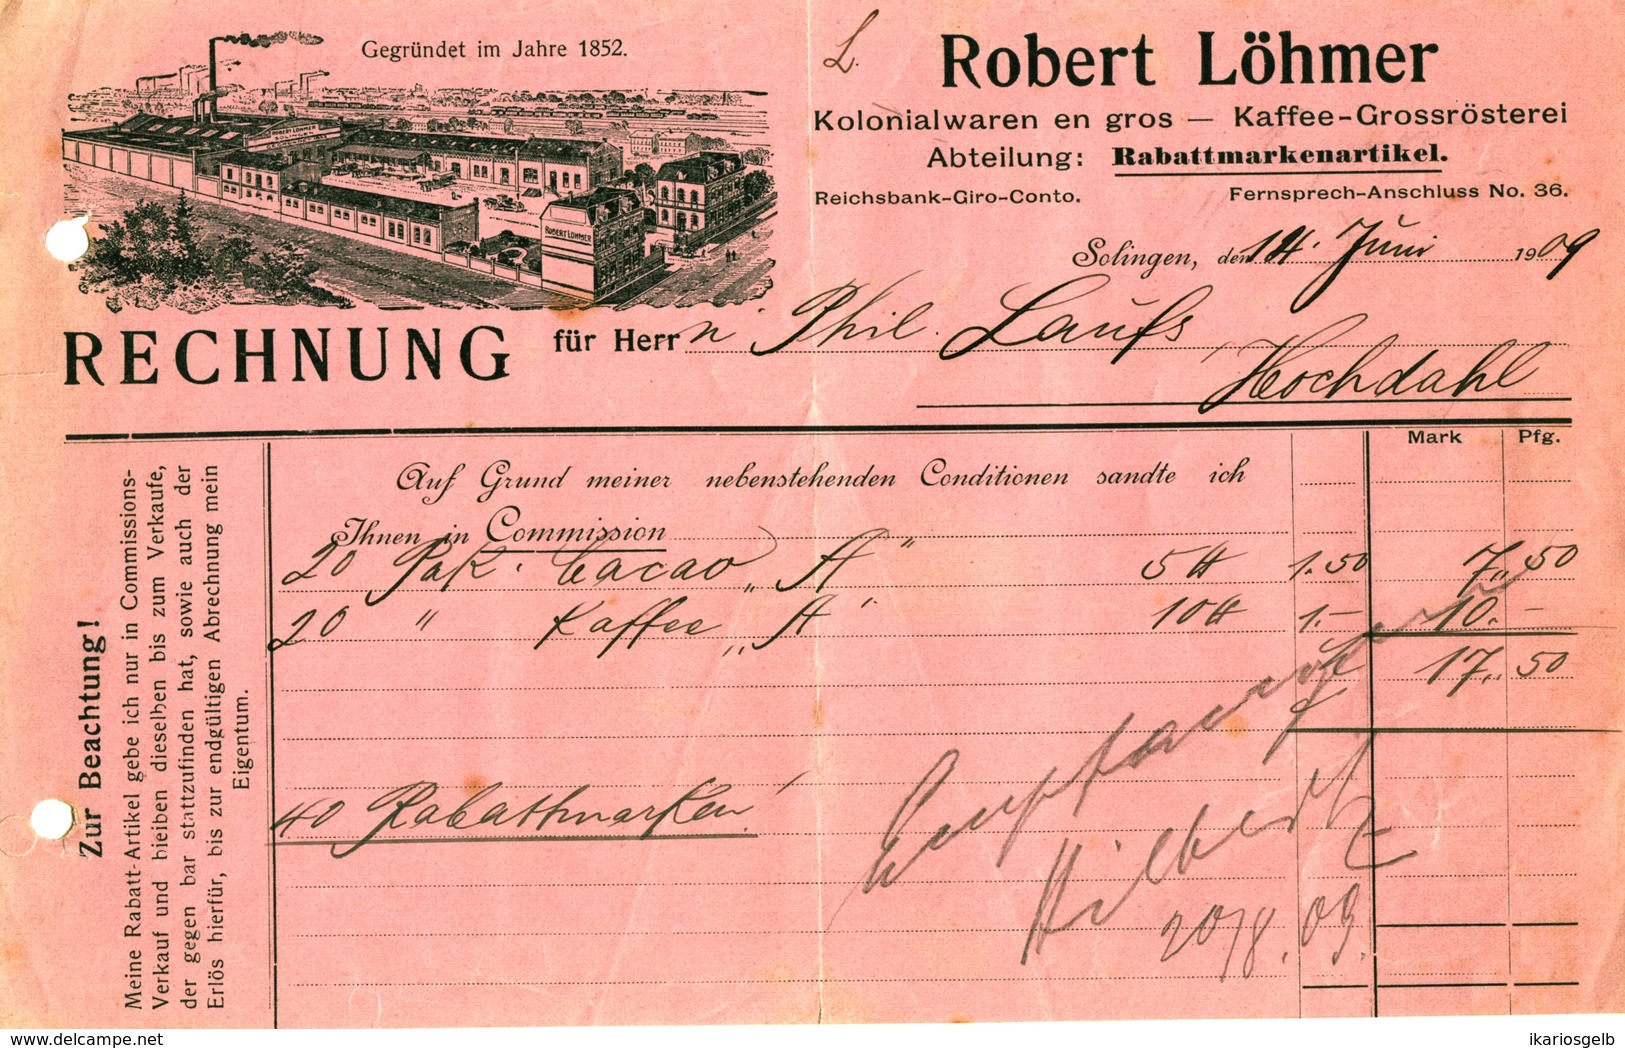 Gegründet im Jahre 1852.
ROBERT LÖHMER
SOLINGEN
ROBERT LÖHMER
L.
Robert Löhmer
Kolonialwaren en gros — Kaffee-Grossrösterei
Abteilung: Rabattmarkenartikel.
Reichsbank-Giro-Conto. Fernsprech-Anschluss No. 36.
Solingen, den 14. Juni 1909
RECHNUNG für Herrn Phil. Laufs,
Hochdahl
Mark Pfg.
Auf Grund meiner nebenstehenden Conditionen sandte ich
Ihnen in Commission
20 Pak. Cacao „A" 5 ℔ 1.50 7,,50
20 " Kaffee „A" 10 ℔ 1.- 10.-
17,,50
40 Rabattmarken!
20/8. 09.
Zur Beachtung!
Meine Rabatt-Artikel gebe ich nur in Commissions-
Verkauf und bleiben dieselben bis zum Verkaufe,
der gegen bar stattzufinden hat, sowie auch der
Erlös hierfür, bis zur endgültigen Abrechnung mein
Eigentum.
www.delcampe.net
ikariosgelb